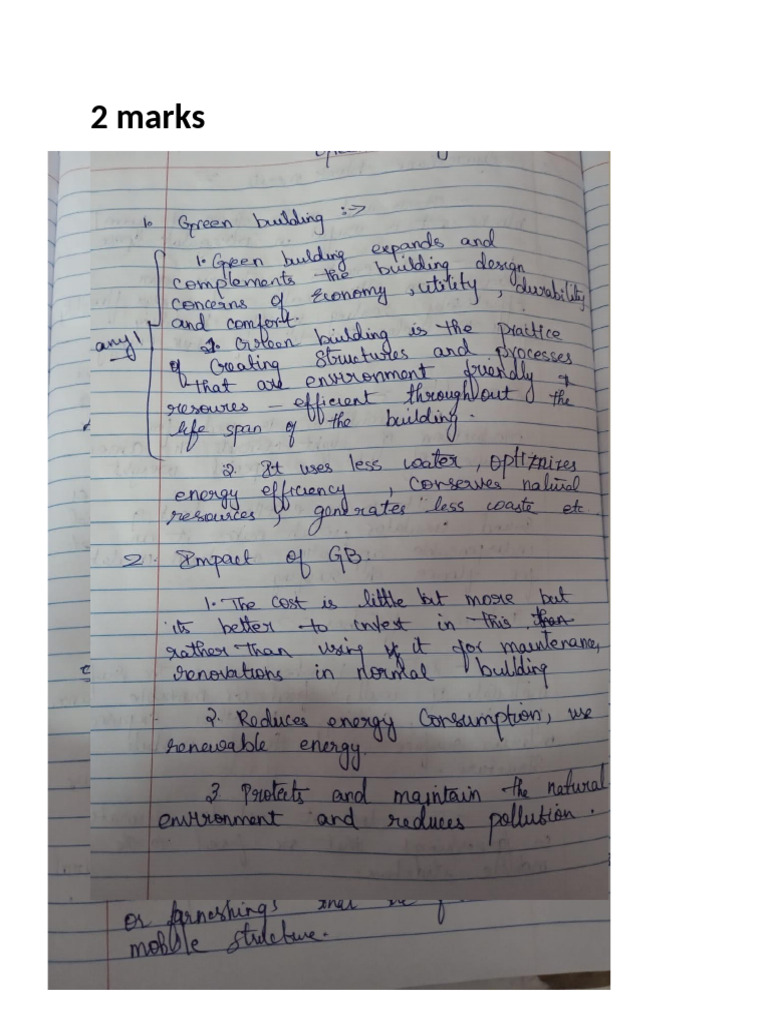 2 marks
1. Green building :->
1. Green building expands and
complements the building design
concerns of Economy, utility, durability
and comfort.
any 1
1. Green building is the practice
of creating structures and processes
that are environment friendly &
resoures - efficient throughout the
life span of the building.
2. It uses less water, optiznizes
energy efficiency, conserves natural
resources, generates less waste etc
2. Impact of GB.
1. The cost is little bit more but
its better to invest in this than
rather than using it for maintenance,
renovations in normal building
2. Reduces energy consumption, use
renewable energy.
3 Protects and maintain the natural
environment and reduces pollution.
or farneshings
mobile structure.